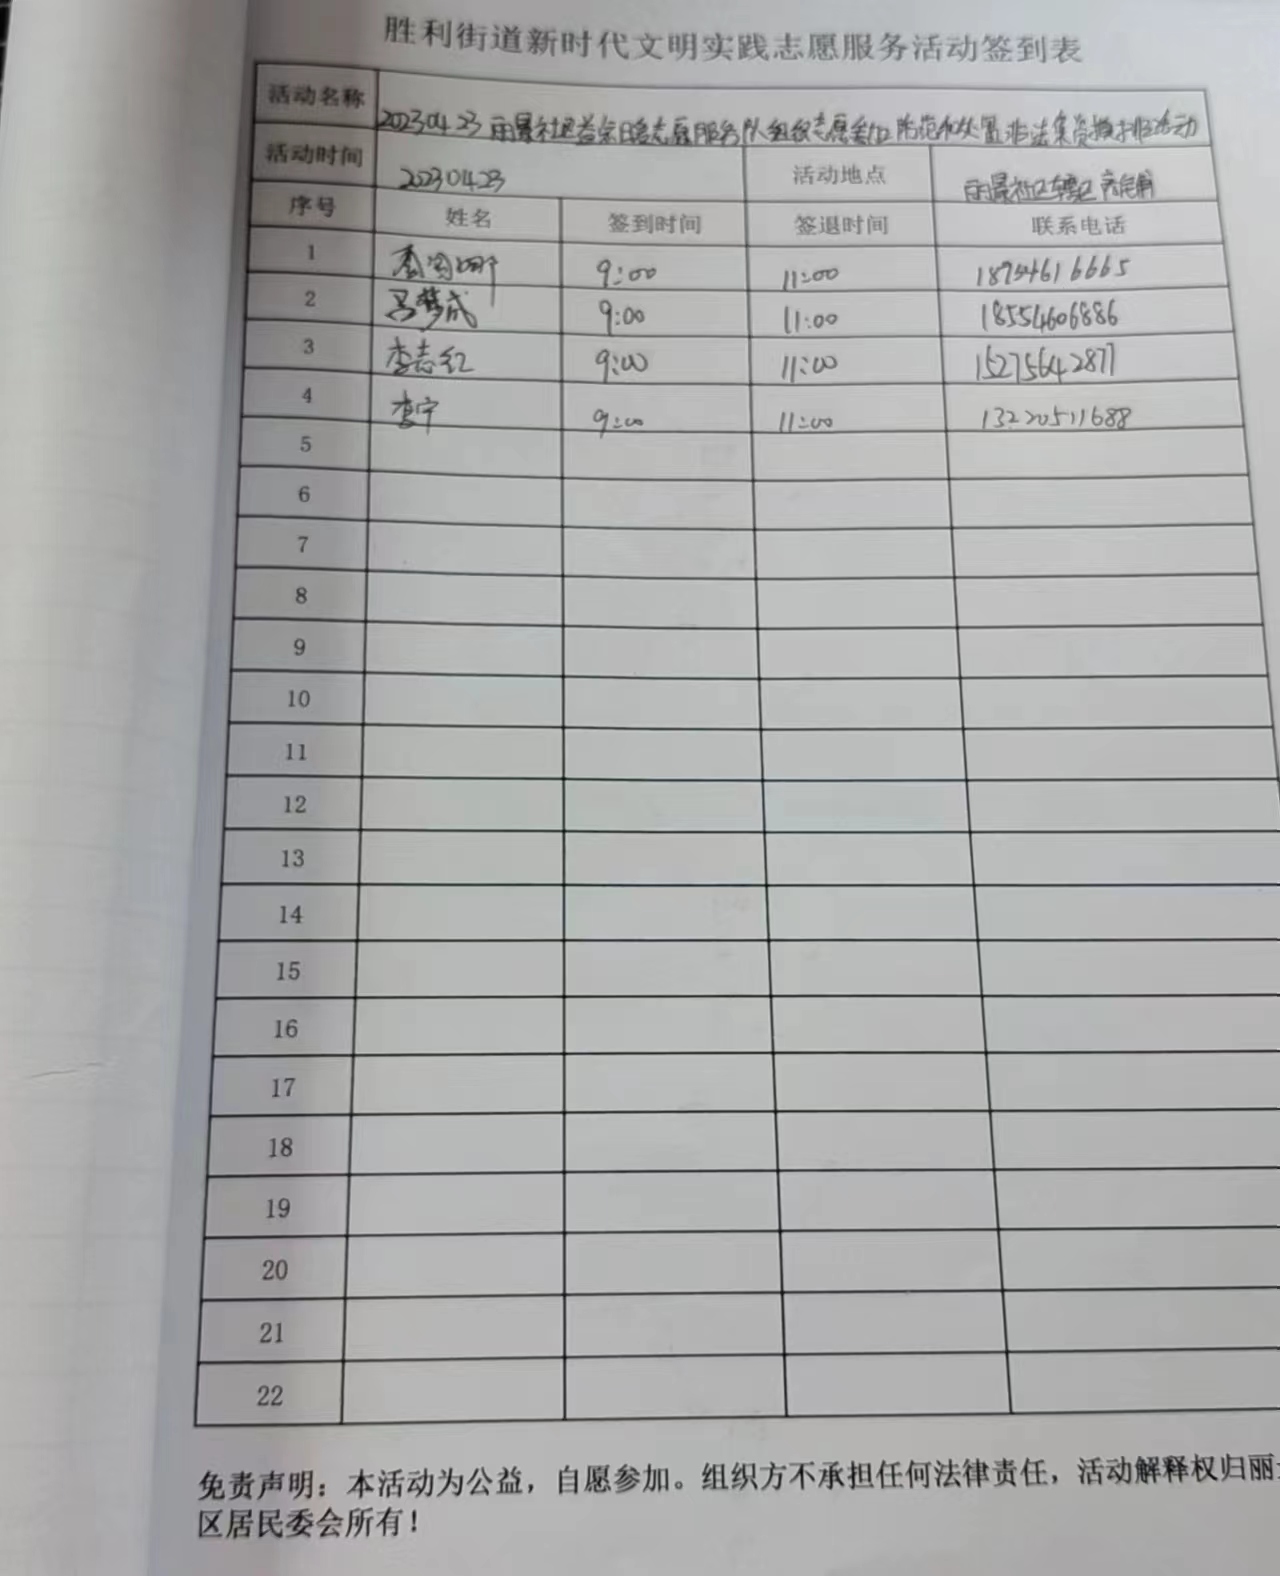 胜利街道新时代文明实践志愿服务活动签到表
活动名称 20230423 丽景社区益家日暖志愿服务队组织志愿者 防范和处置非法集资 活动
活动时间 20230423 活动地点 丽景社区辖区商店前
序号 姓名 签到时间 签退时间 联系电话
1 9:00 11:00 18754616665
2 吕梦成 9:00 11:00 18554606886
3 李志红 9:00 11:00 15275642877
4 李宁 9:00 11:00 13220511688
5
6
7
8
9
10
11
12
13
14
15
16
17
18
19
20
21
22
免责声明：本活动为公益，自愿参加。组织方不承担任何法律责任，活动解释权归丽
区居民委会所有！